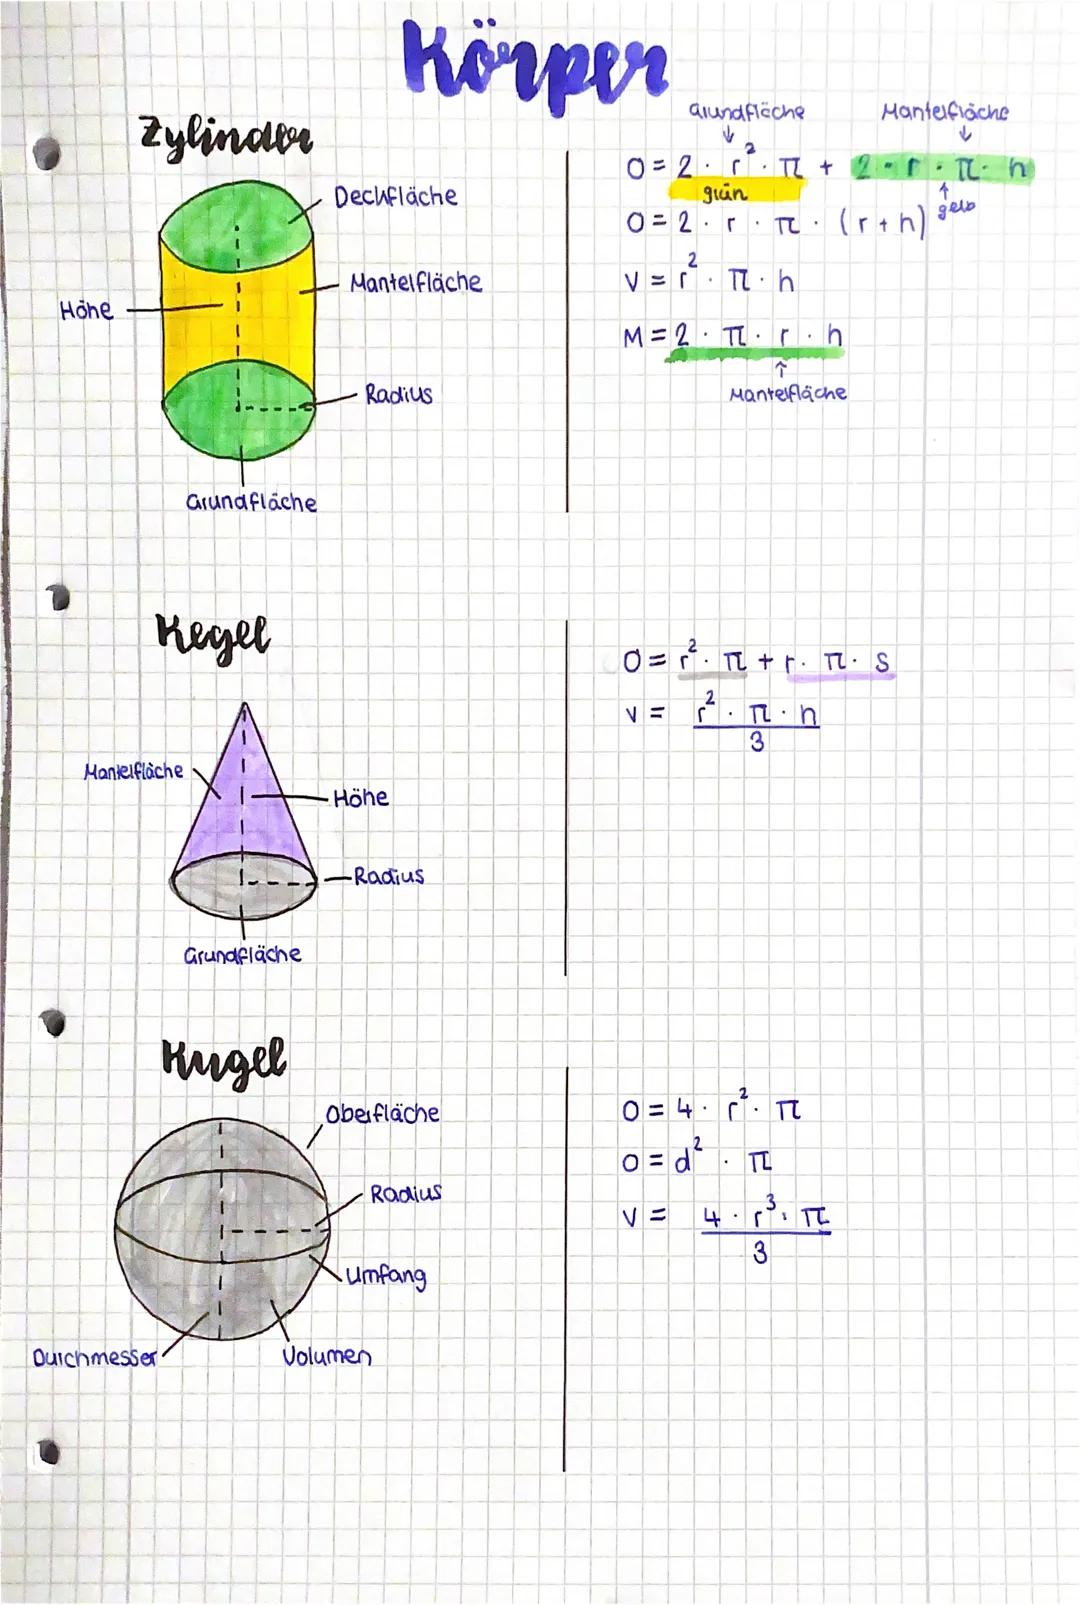 Körper
Zylinder
Deckfläche
Mantelfläche
Höhe
Radius
Grundfläche
Grundfläche Mantelfläche
↓ ↓
O = 2 · r² · π + 2 · r · π · h
grün ↑ gelb
O = 2 · r · π · (r + h)
V = r² · π · h
M = 2 · π · r · h
↑
Mantelfläche
Kegel
Mantelfläche
Höhe
Radius
Grundfläche
O = r² · π + r · π · s
V = r² · π · h
3
Kugel
Oberfläche
Radius
Umfang
Durchmesser
Volumen
O = 4 · r² · π
O = d² · π
V = 4 · r³ · π
3